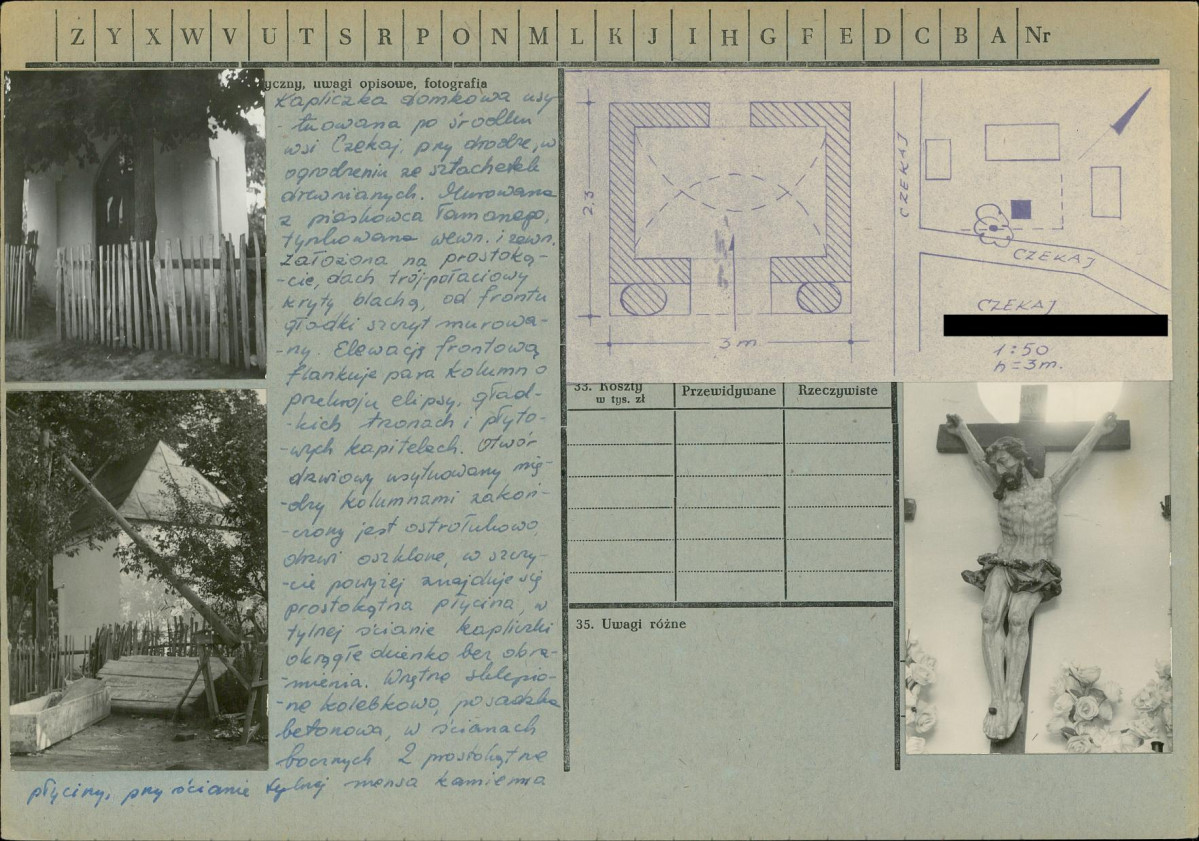 Z Y X W V U T S R P O N M L K J I H G F E D C B A Nr
yczny, uwagi opisowe, fotografia
Kapliczka domkowa usy-
-tuowana po środku
wsi Czekaj, przy drodze, w
ogrodzeniu ze sztachetek
drewnianych. Murowana
z piaskowca łamanego,
tynkowana wewn. i zewn.
Założona na prostoką-
-cie, dach trój-połaciowy
kryty blachą, od frontu
gładki szczyt murowa-
-ny. Elewację frontową
flankuje para kolumn o
przekroju elipsy, gład-
-kich trzonach i płyto-
-wych kapitelach. Otwór
drzwiowy usytuowany mię-
-dzy kolumnami zakoń-
-czony jest ostrołukowo,
drzwi oszklone, w szczy-
-cie powyżej znajduje się
prostokątna płycina, w
tylnej ścianie kapliczki
okrągłe okienko bez obra-
-mienia. Wnętrze sklepio-
-ne kolebkowo, posadzka
betonowa, w ścianach
bocznych 2 prostokątne
płyciny, przy ścianie tylnej mensa kamienna
2,3
3 m
CZEKAJ
CZEKAJ
CZEKAJ
1:50
h=3m.
33. Koszty
w tys. zł
Przewidywane
Rzeczywiste
35. Uwagi różne